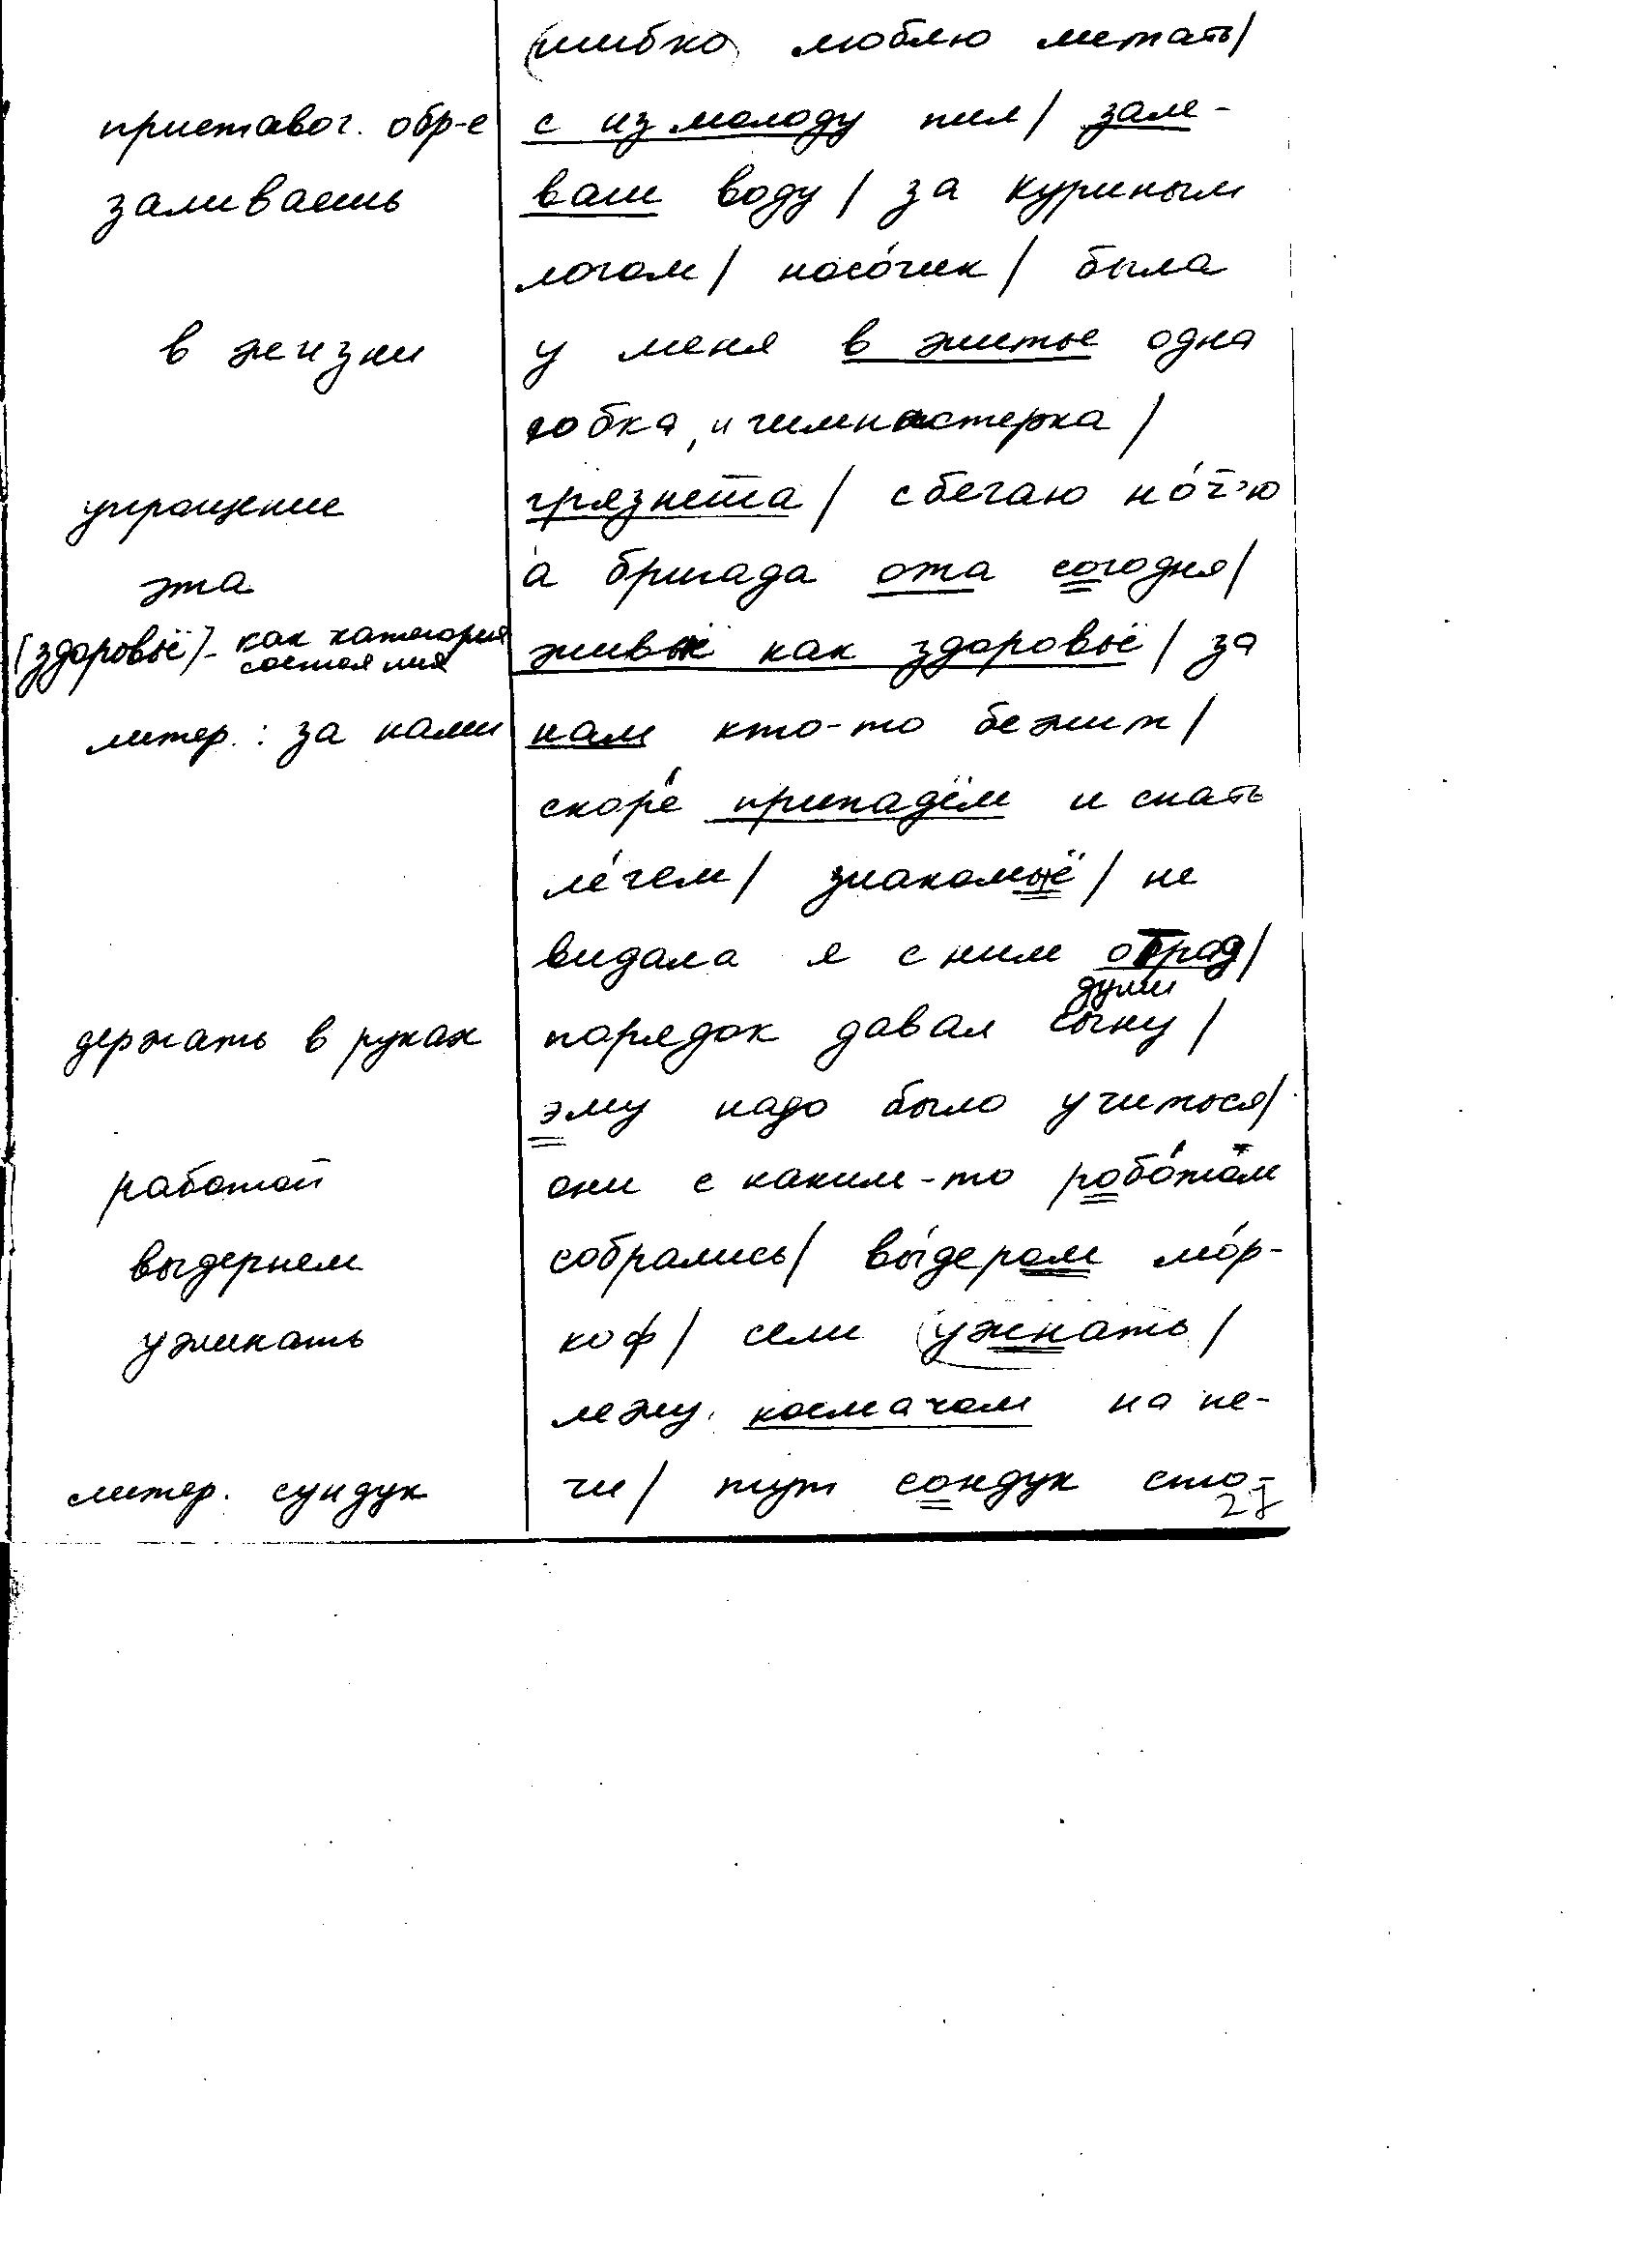 (шибко) люблю метать/
приставоч. обр-е с измолоду пил/ зали-
заливаешь ваш воду/ за куриным
логом/ носо́чик/ была
в жизни у меня в житье одна
юбка, и гимнастерка/
упрощение грязнета/ сбегаю но́ч'ю
эта а бригада ота согодня/
(здоровьё) - как категория состояния живы как здоровьё/ за
литер.: за нами нам кто-то бежит/
скоре́ припадём и спать
ле́гем/ знакомыё/ не
видала я с ним отрад/
души
держать в руках порядок давал сыну/
эму надо было учиться/
работой они с каким-то робо́том
выдернем собрались/ вы́дером мо́р-
ужинать коф/ сели (ужнать/
лежу космачом на пе-
литер. сундук чи/ тут сондук сто-